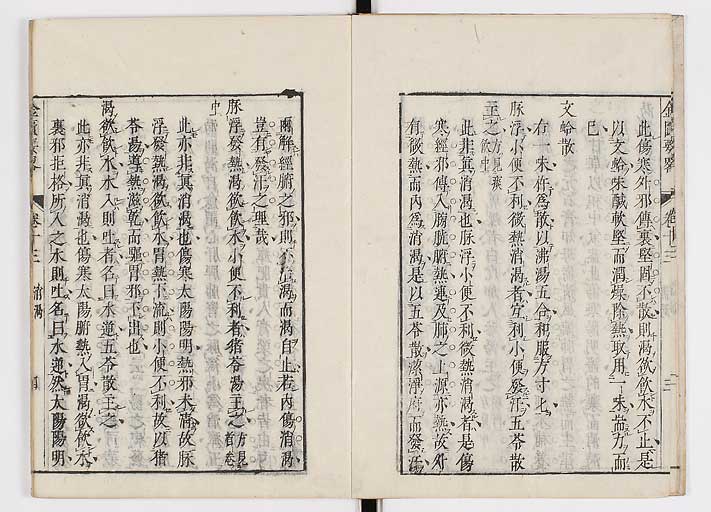 此傷寒外邪傳裏堅固不散則渴欲飲水不止是
以文蛤味鹹軟堅而潤燥除熱取用一味耑力而
已
文蛤散
右一味杵爲散以沸湯五合和服方寸匕
脉浮小便不利微熱消渴者宜利小便發汗五苓散
主之 方見痰飲中
此非眞消渴也脉浮小便不利微熱消渴者是傷
寒經邪傳入膀胱腑熱延及肺之上源亦熱故外
有微熱而內爲消渴是以五苓散潔淨府而發汗
兩解經腑之邪則不治渴而渴自止若內傷消渴
豈有發汗之理哉
脉浮發熱渴欲飲水小便不利者猪苓湯主之 方見首卷中
此亦非眞消渴也傷寒太陽陽明熱邪未淸故脉
浮發熱渴欲飲水胃熱下流則小便不利故以猪
苓湯導熱滋乾而驅胃邪下出也
渴欲飲水水入則吐者名曰水逆五苓散主之
此亦非眞消渴也傷寒太陽腑熱入胃渴欲飲水
裏邪拒格所入之水則吐名曰水逆然太陽陽明
卷十三
消渴
四
卷十三
三